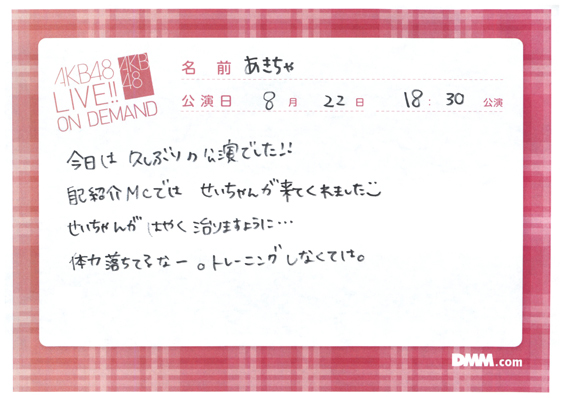 AKB48
LIVE!!
ON DEMAND
AKB
48
名 前 あきちゃ
公演日 8月 22日 18:30 公演
今日は 久しぶりの公演でした!!
自己紹介MCでは せいちゃんが来てくれました
せいちゃんが はやく 治りますように…
体力落ちてるなー。トレーニングしなくては。
DMM.com